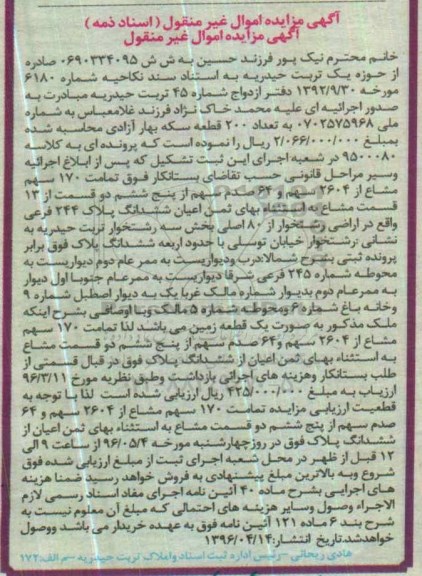 آگهی مزایده اموال غیر منقول ( اسناد ذمه )
آگهی مزایده اموال غیر منقول
خانم محترم نیک پور فرزند حسین به ش ش ۰۶۹۰۳۳۴۰۹۵ صادره
از حوزه یک تربت حیدریه به استناد سند نکاحیه شماره ۶۱۸۰
مورخه ۱۳۹۲/۹/۳۰ دفتر ازدواج شماره ۴۵ تربت حیدریه مبادرت به
صدور اجرائیه ای علیه محمد خاک نژاد فرزند غلامعباس به شماره
ملی ۰۷۰۲۵۷۵۹۶۸ به تعداد ۲۰۰ قطعه سکه بهار آزادی محاسبه شده
بمبلغ ۲/۰۶۶/۰۰۰/۰۰۰ ریال را نموده است که پرونده ای به کلاسه
۹۵۰۰۰۸۰ در شعبه اجرای این ثبت تشکیل که پس از ابلاغ اجرائیه
وسیر مراحل قانونی حسب تقاضای بستانکار فوق تمامت ۱۷۰ سهم
مشاع از ۲۶۰۴ سهم و ۶۴ صدم سهم از پنج ششم دو قسمت از ۱۳
قسمت مشاع به استثناء بهای ثمن اعیان ششدانگ پلاک ۲۴۴ فرعی
واقع در اراضی رشتخوار از ۸۰ اصلی بخش سه رشتخوار تربت حیدریه به
نشانی :رشتخوار خیابان توسلی با حدود اربعه ششدانگ پلاک فوق برابر
پرونده ثبتی بشرح شمالا:درب ودیواریست به ممر عام دوم دیواریست به
محوطه شماره ۲۴۵ فرعی شرقا دیواریست به ممرعام جنوبا اول دیوار
به ممرعام دوم بدیوار شماره مالک غربا یک به دیوار اصطبل شماره ۹
وخانه باغ شماره ۶ ومحوطه شماره ۵ مالک وبا اوصافی بشرح اینکه
ملک مذکور به صورت یک قطعه زمین می باشد لذا تمامت ۱۷۰ سهم
مشاع از ۲۶۰۴ سهم و۶۴ صدم سهم از پنج ششم دو قسمت مشاع
به استثناء بهای ثمن اعیان از ششدانگ پلاک فوق در قبال قسمتی از
طلب بستانکار وهزینه های اجرائی بازداشت وطبق نظریه مورخ ۹۶/۳/۱۱
ارزیاب به مبلغ ۴۲۵/۰۰۰/۰۰۰ ریال ارزیابی شده است لذا با توجه به
قطعیت ارزیابی مزایده تمامت ۱۷۰ سهم مشاع از ۲۶۰۴ سهم و ۶۴
صدم سهم از پنج ششم دو قسمت مشاع به استثناء بهای ثمن اعیان از
ششدانگ پلاک فوق در روزچهارشنبه مورخه ۹۶/۰۵/۴ از ساعت ۹ الی
۱۲ قبل از ظهر در محل شعبه اجرای ثبت از مبلغ ارزیابی شده فوق
شروع وبه بالاترین مبلغ پیشنهادی به فروش خواهد رسید ضمنا هزینه
های اجرایی بشرح ماده ۴۰ آئین نامه اجرای مفاد اسناد رسمی لازم
الاجراء وصول وسایر هزینه های احتمالی که مبلغ آن معلوم نیست به
شرح بند ۶ ماده ۱۲۱ آئین نامه فوق به عهده خریدار می باشد ووصول
خواهدشد.تاریخ انتشار:۱۳۹۶/۰۴/۱۴
هادی ریحانی –رئیس اداره ثبت اسناد واملاک تربت حیدریه –م الف:۱۷۲